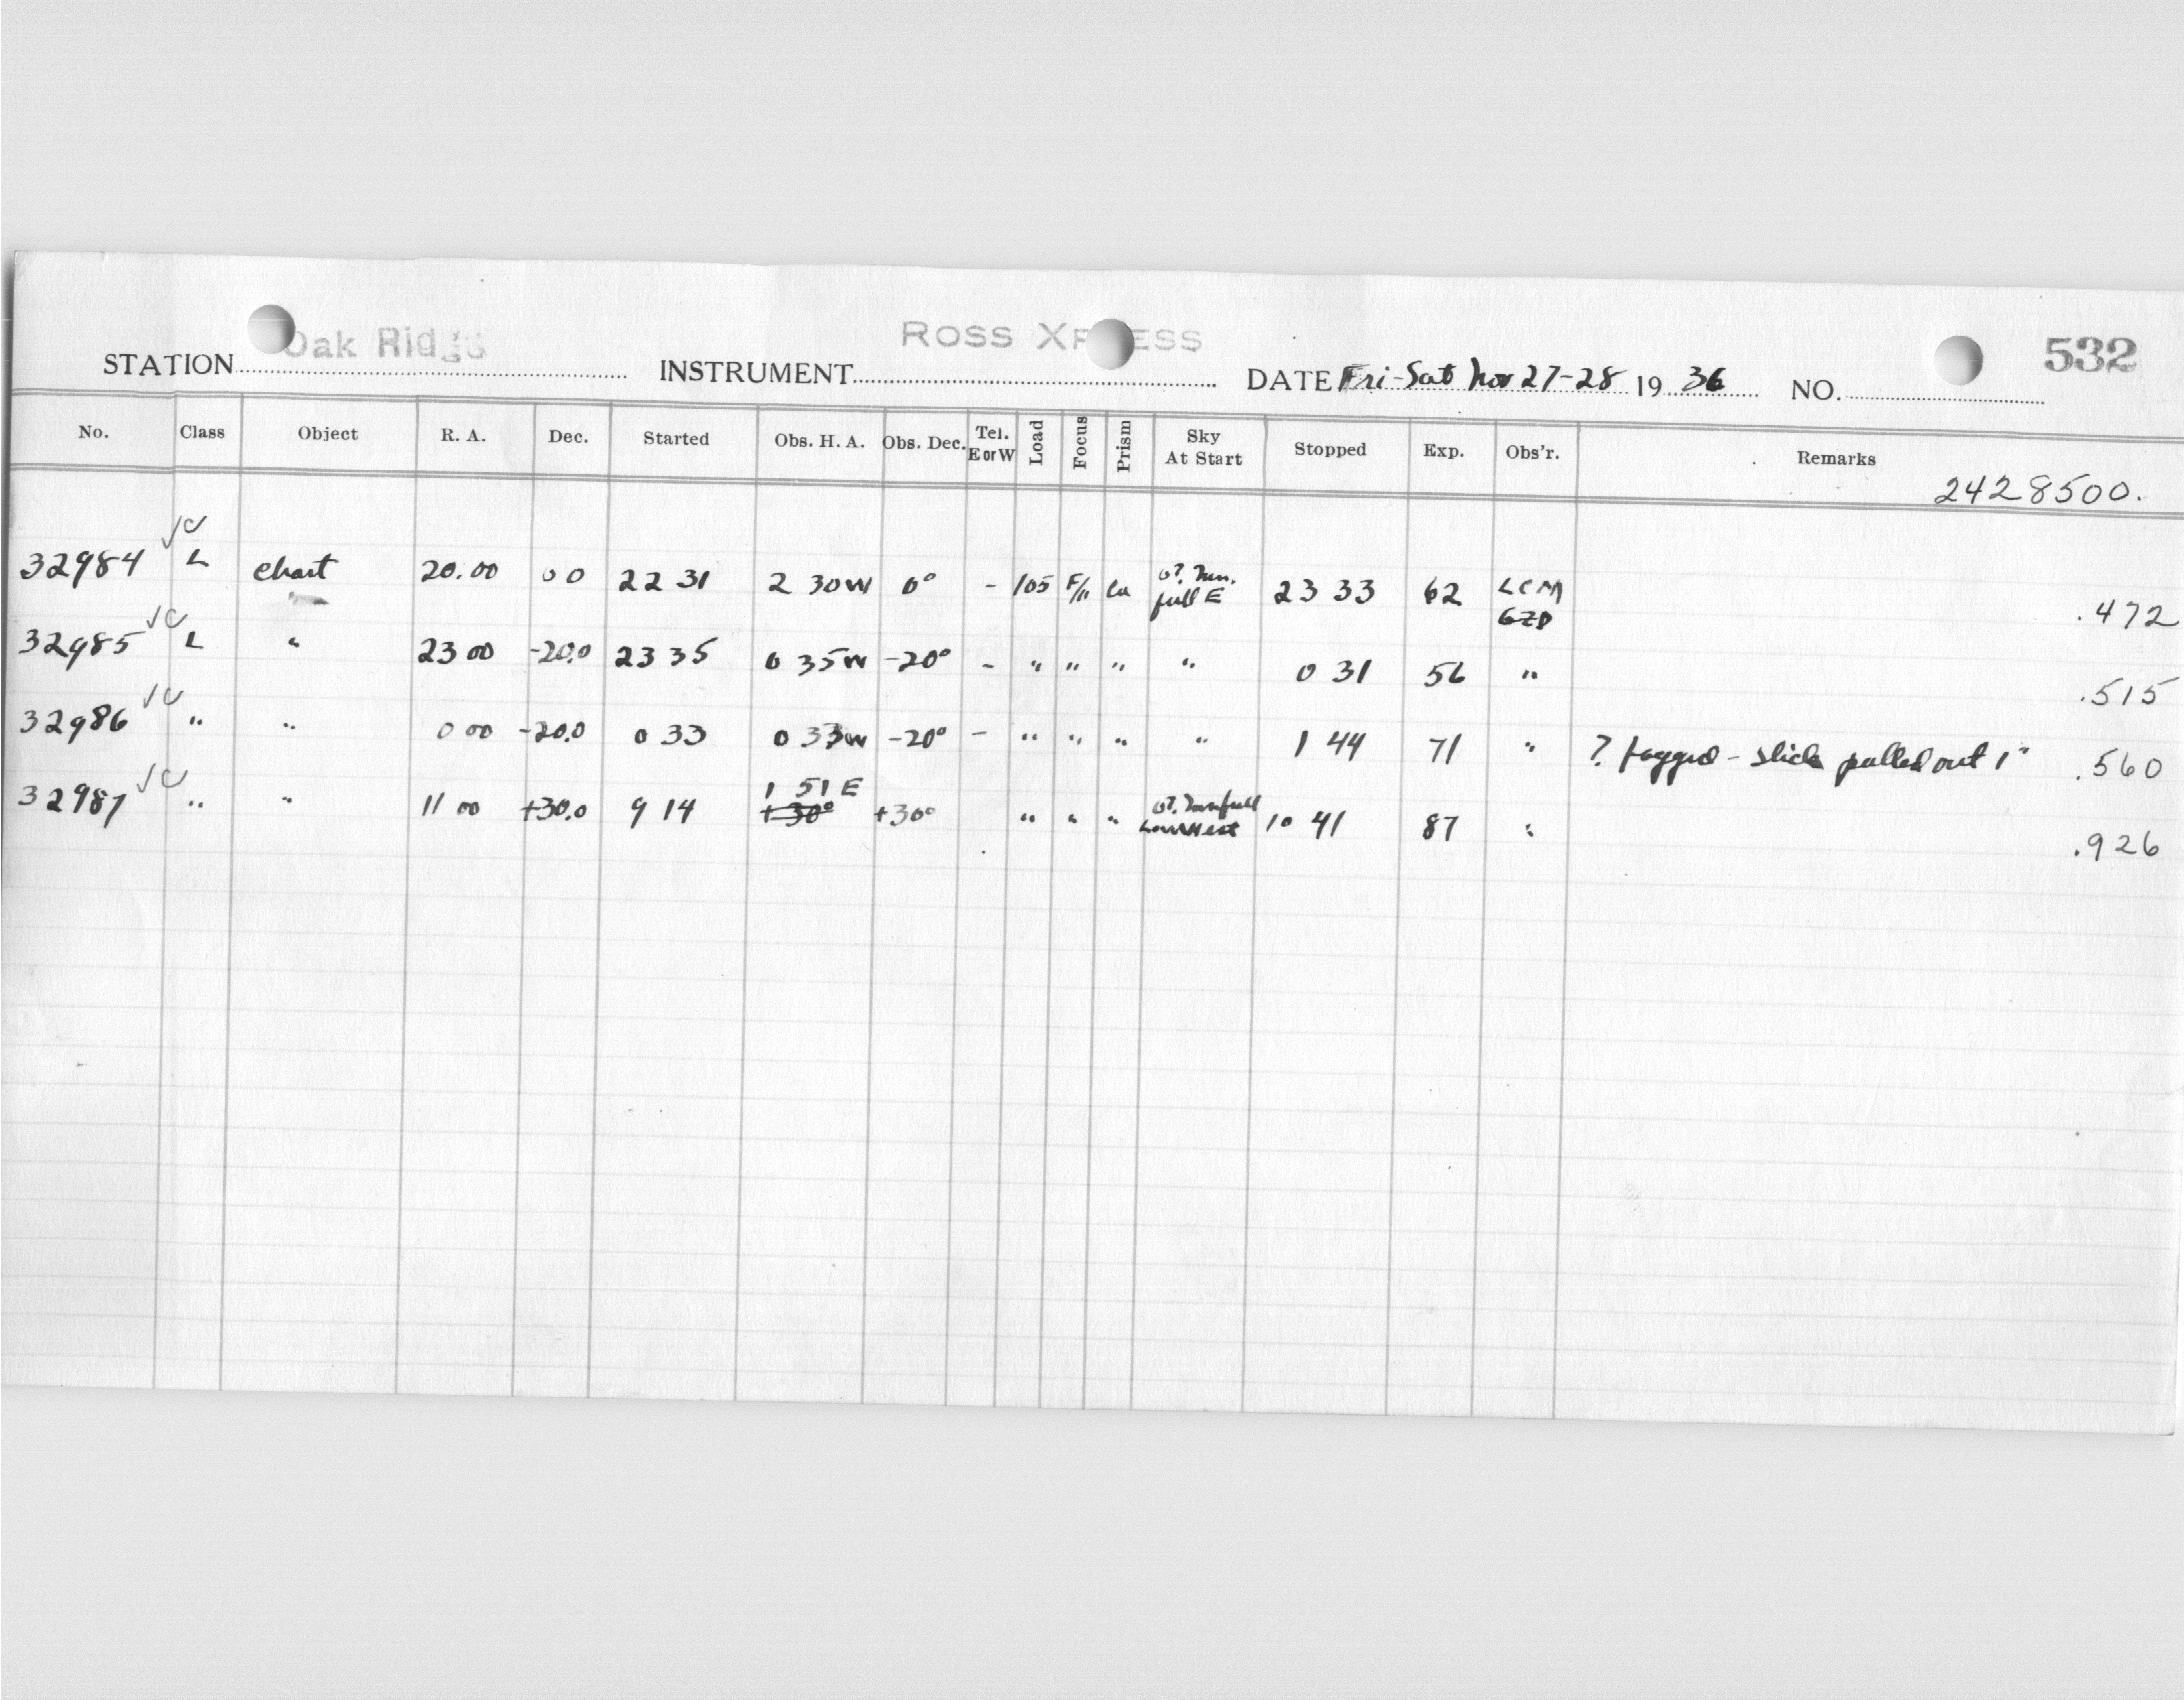 STATION Oak Ridge INSTRUMENT ROSS XPRESS DATE Fri-Sat Nov 27-28 19 36 NO. 532
No. Class Object R. A. Dec. Started Obs. H. A. Obs. Dec. Tel. E or W Load Focus Prism Sky At Start Stopped Exp. Obs'r. Remarks
2428500.
32984 √C L chart 20.00 00 22 31 2 30W 0° - 105 F/11 full E 23 33 62 LCM GZD .472
32985 √C L " 23 00 -20.0 23 35 0 35W -20° - " " " " 0 31 56 " .515
32986 √C " " 0 00 -20.0 0 33 0 33W -20° - " " " " 1 44 71 " ? fogged - slide pulled out 1" .560
32987 √C " " 11 00 +30.0 9 14 1 51 E +30° +30° " " " 10 41 87 " .926